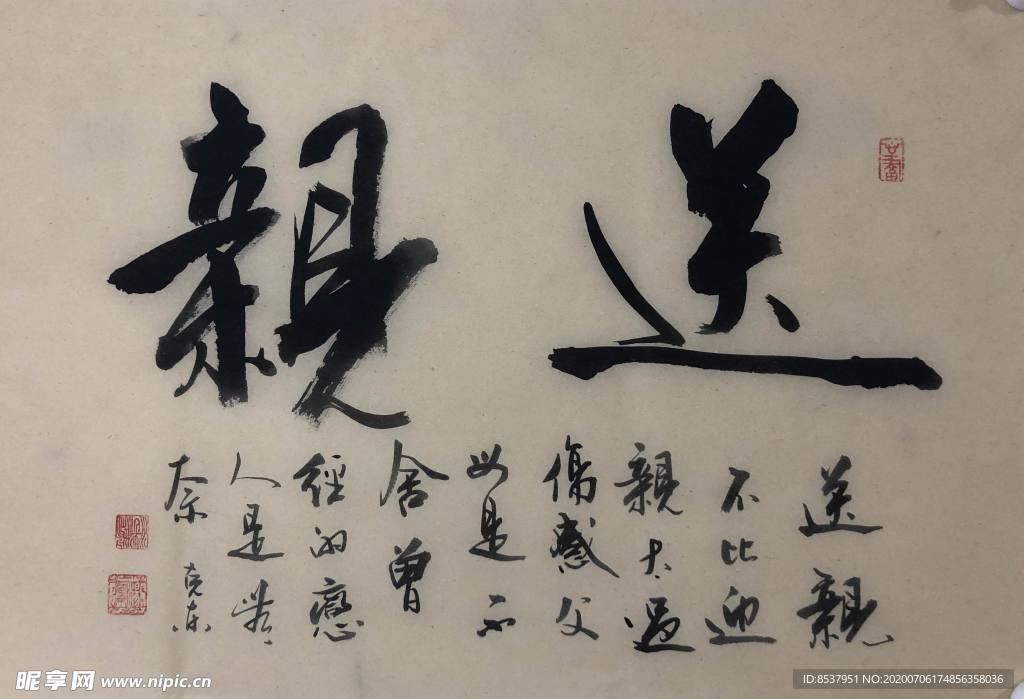 送親
送親
不比迎
親太過
傷感父
母是不
舍曾
經的戀
人是無
奈 克东
昵享网 www.nipic.cn
ID:8537951 NO:20200706174856358036